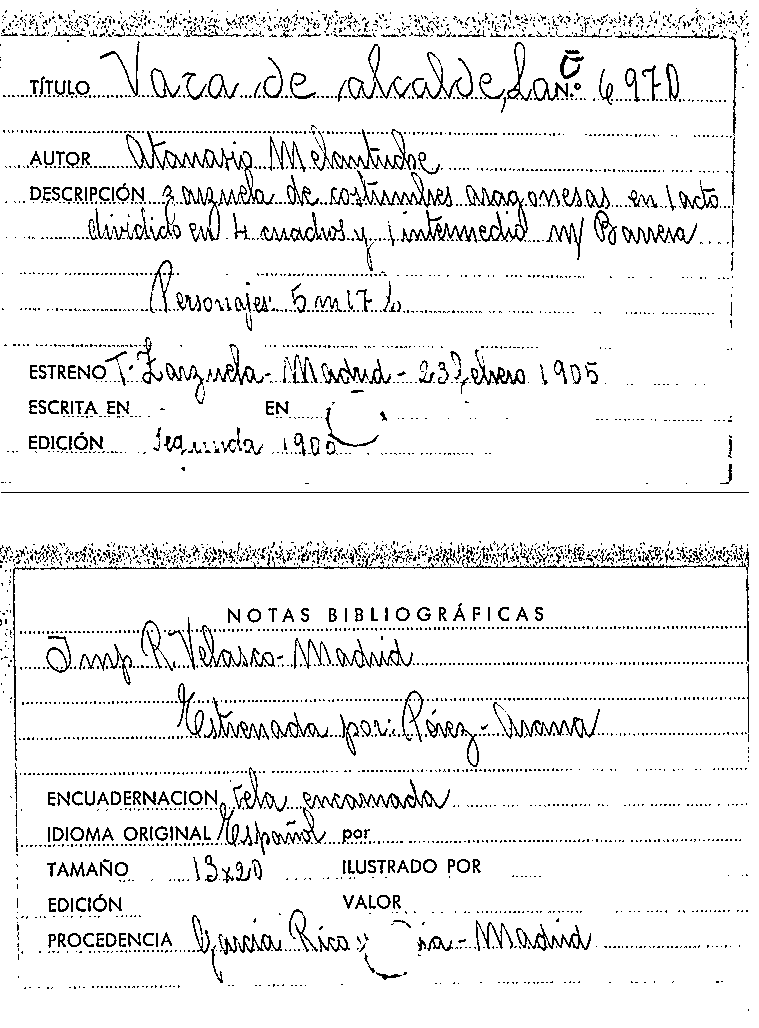 TÍTULO Vara de alcalde, La N.º 6970
AUTOR Atanasio Melantuche
DESCRIPCIÓN zarzuela de costumbres aragonesas en 1 acto
dividido en 4 cuadros y 1 intermedio m/ Barrera
Personajes: 5 m 17 h
ESTRENO T. Zarzuela - Madrid - 23 Febrero 1905
ESCRITA EN - EN
EDICIÓN Segunda 1905
NOTAS BIBLIOGRÁFICAS
Imp R. Velasco - Madrid
Estrenada por: Pérez - Arana
ENCUADERNACION tela encarnada
IDIOMA ORIGINAL Español por
TAMAÑO 13x20 ILUSTRADO POR
EDICIÓN VALOR
PROCEDENCIA García Rico y - Madrid